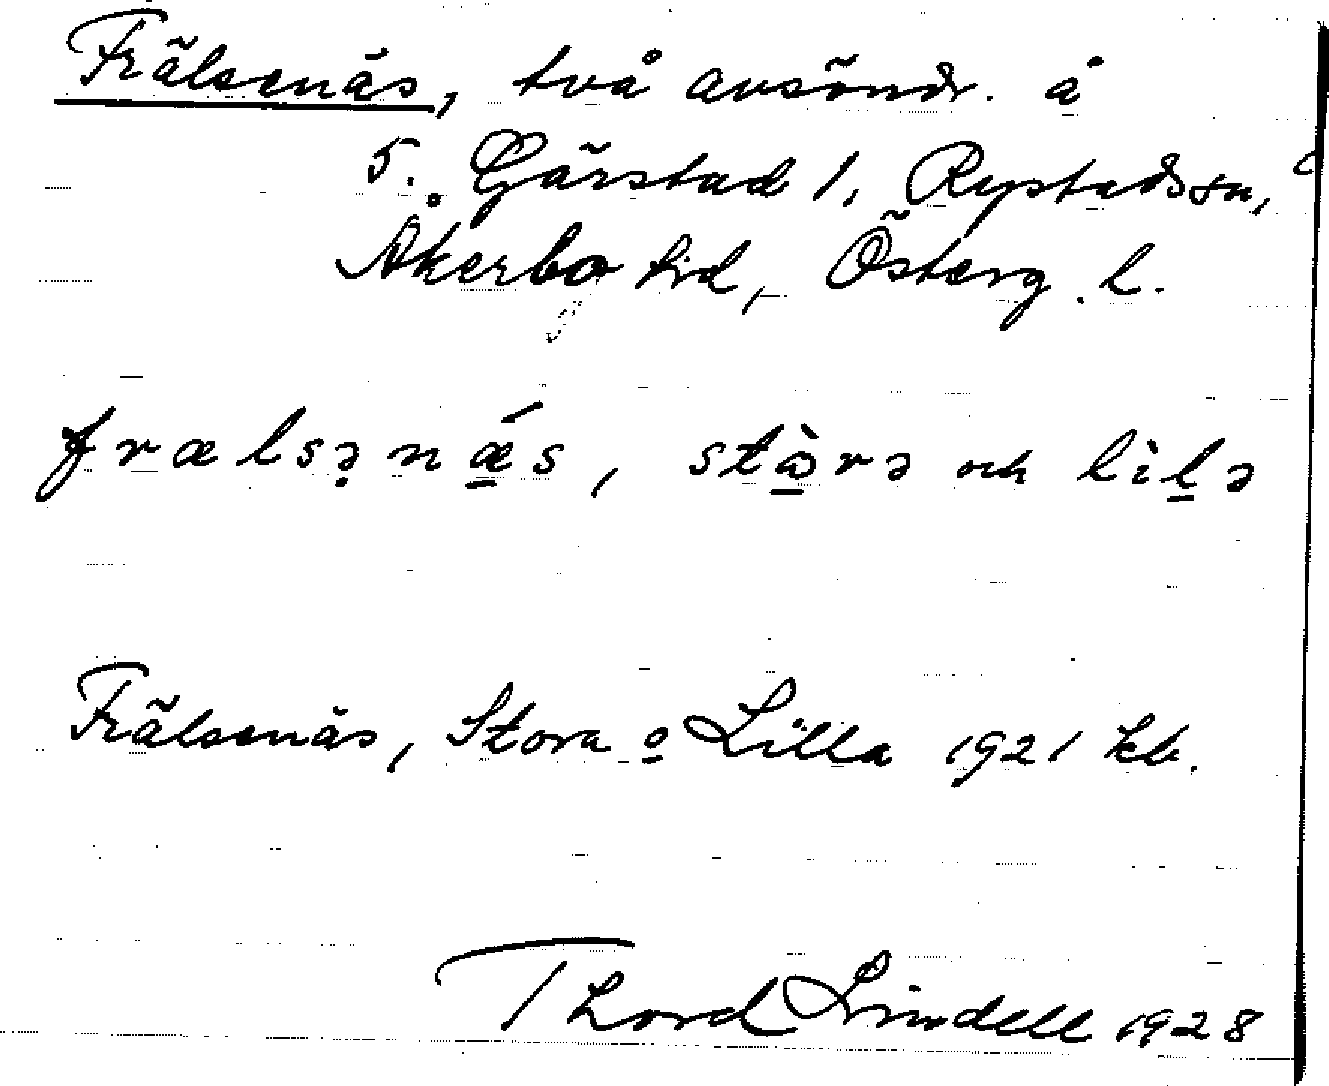 Frälsenäs, två avsöndr. å
5. Gärstad 1, Rystads sn,
Åkerbo hd, Österg. l.
frælsənǽs, stɷ̀rə och lìlə
Frälsenäs, Stora o Lilla 1921 kb.
Thord Lindell 1928